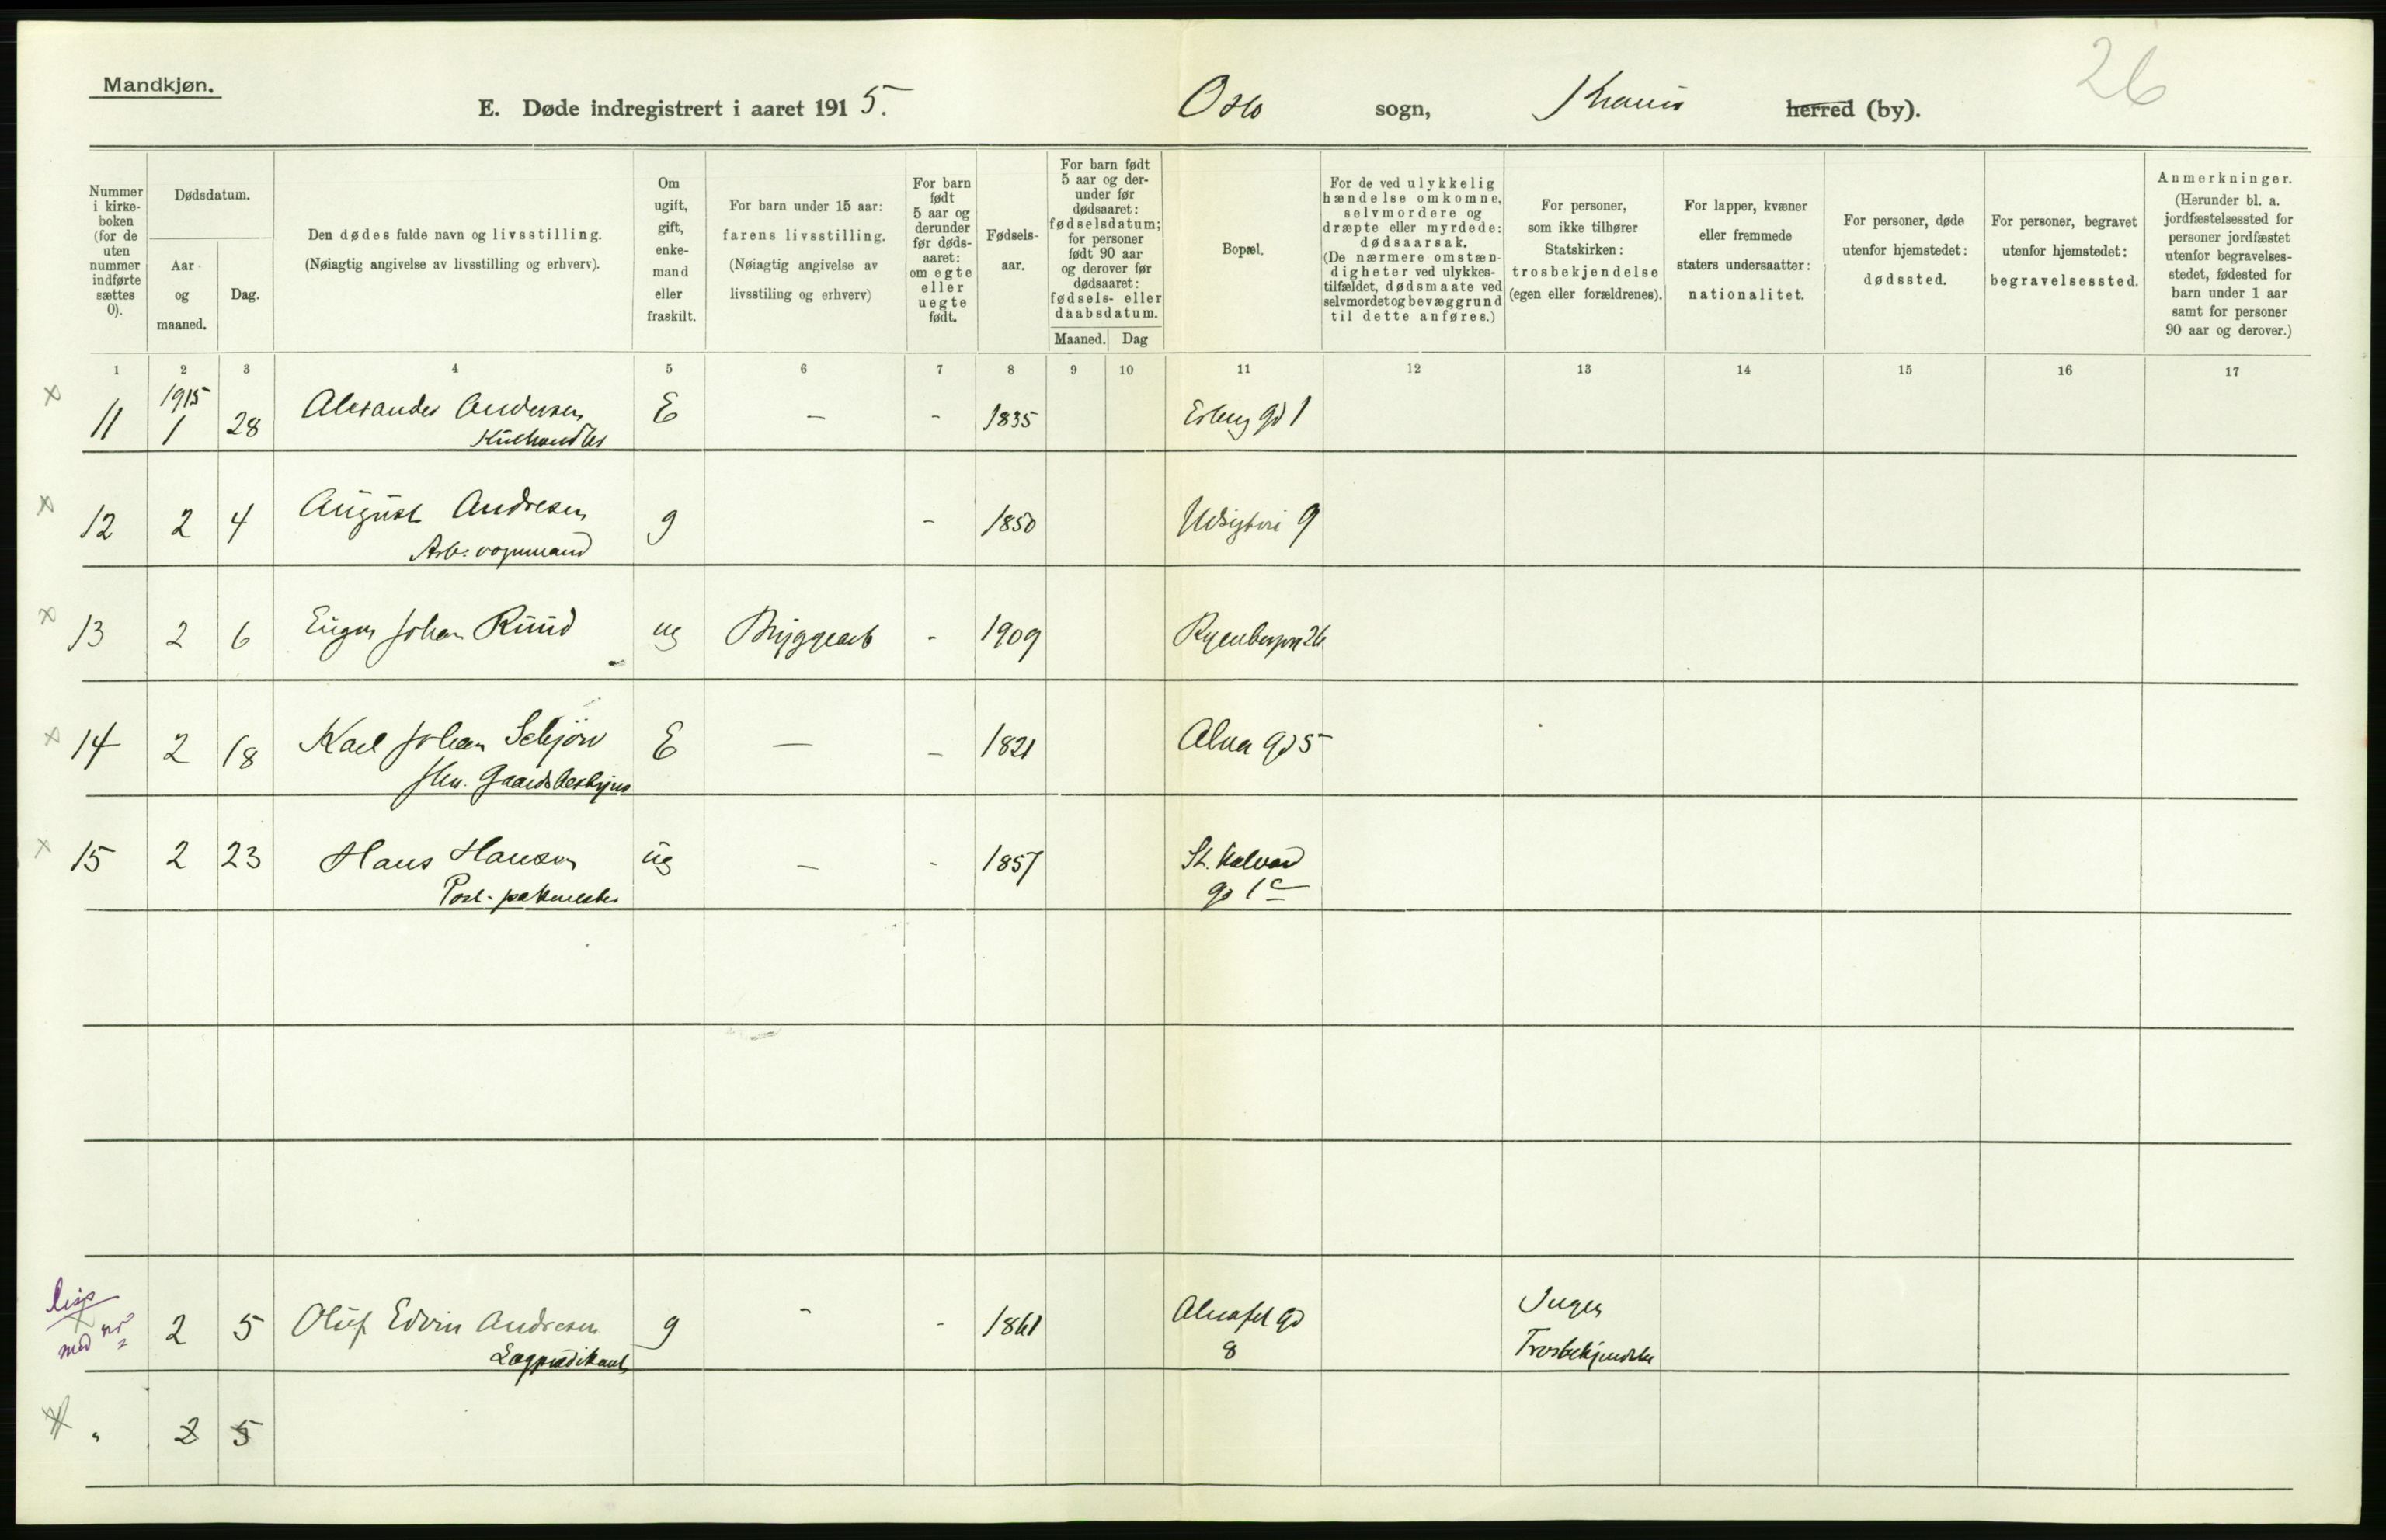 26
Mandkjøn.
E. Døde indregistrert i aaret 1915. Oslo sogn, Krania herred (by).
Nummer i kirke-boken (for de uten nummer indførte sættes 0).
Dødsdatum.
Aar og maaned.
Dag.
Den dødes fulde navn og livsstilling.
(Nøiagtig angivelse av livsstilling og erhverv).
Om ugift, gift, enke-mand eller fraskilt.
For barn under 15 aar: farens livsstilling.
(Nøiagtig angivelse av livsstiling og erhverv)
For barn født 5 aar og derunder før døds-aaret: om egte eller uegte født.
Fødsels-aar.
For barn født 5 aar og der-under før dødsaaret: fødselsdatum; for personer født 90 aar og derover før dødsaaret: fødsels- eller daabsdatum.
Maaned. Dag
Bopæl.
For de ved ulykkelig hændelse omkomne, selvmordere og dræpte eller myrdede: dødsaarsak.
(De nærmere omstæn-digheter ved ulykkes-tilfældet, dødsmaate ved selvmordet og bevæggrund til dette anføres.)
For personer, som ikke tilhører Statskirken: trosbekjendelse (egen eller forældrenes).
For lapper, kvæner eller fremmede staters undersaatter: nationalitet.
For personer, døde utenfor hjemstedet: dødssted.
For personer, begravet utenfor hjemstedet: begravelsessted.
Anmerkninger.
(Herunder bl. a. jordfæstelsessted for personer jordfæstet utenfor begravelses-stedet, fødested for barn under 1 aar samt for personer 90 aar og derover.)
1 2 3 4 5 6 7 8 9 10 11 12 13 14 15 16 17
1915
11 1 28 Alexander Andersen E — - 1835 Esberg gd 1
Kulhandler
12 2 4 August Andresen g - 1850 Utsigtvei 9
Arb: formand
13 2 6 Eugen Johan Ruud ug Bryggearb - 1909 Ryenbergvn 26
14 2 18 Karl Johan Schjörn E — - 1821 Alna gd 5
fhv. Gaardsbestyrer
15 2 23 Hans Hansen ug — - 1857 St. Halvard
Post-pakmester gd 1c
med nr 2
2 5 Oluf Edvin Andresen g - - 1861 Alnafet gd Ingen
Lægprædikant 8 Trosbekjendelse
" 2 5